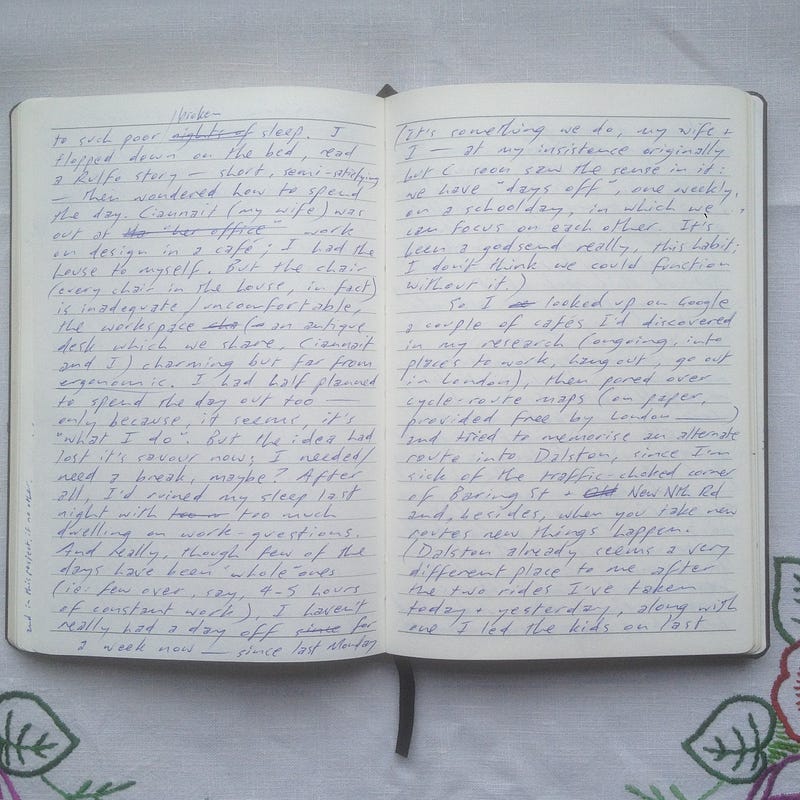 broken
to such poor nights of sleep. I
flopped down on the bed, read
a Rulfo story — short, semi-satisfying
— then wondered how to spend
the day. Ciannait (my wife) was
out at "her office" work
on design in a café; I had the
house to myself. But the chair
(every chair in the house, in fact)
is inadequate/uncomfortable,
the workspace (an antique
desk which we share, Ciannait
and I) charming but far from
ergonomic. I had half planned
to spend the day out too —
only because, it seems, it's
"what I do". But the idea had
lost it's savour now; I needed/
need a break, maybe? After
all, I'd ruined my sleep last
night with too much
dwelling on work-questions.
And really, though few of the
days have been "whole" ones
(ie: few over, say, 4-5 hours
of constant work), I haven't
really had a day off since for
a week now — since last Monday
(It's something we do, my wife +
I — at my insistence originally
but C. soon saw the sense in it:
we have "days off", one weekly,
on a schoolday, in which we
can focus on each other. It's
been a godsend really, this habit;
I don't think we could function
without it.)
So I looked up on Google
a couple of cafés I'd discovered
in my research (ongoing, into
places to work, hang out, go out
in London), then pored over
cycle-route maps (on paper,
provided free by London ———)
and tried to memorise an alternate
route into Dalston, since I'm
sick of the traffic-choked corner
of Baring St + Old New Nth Rd
and, besides, when you take new
routes new things happen.
(Dalston already seems a very
different place to me after
the two rides I've taken
today + yesterday, along with
one I led the kids on last